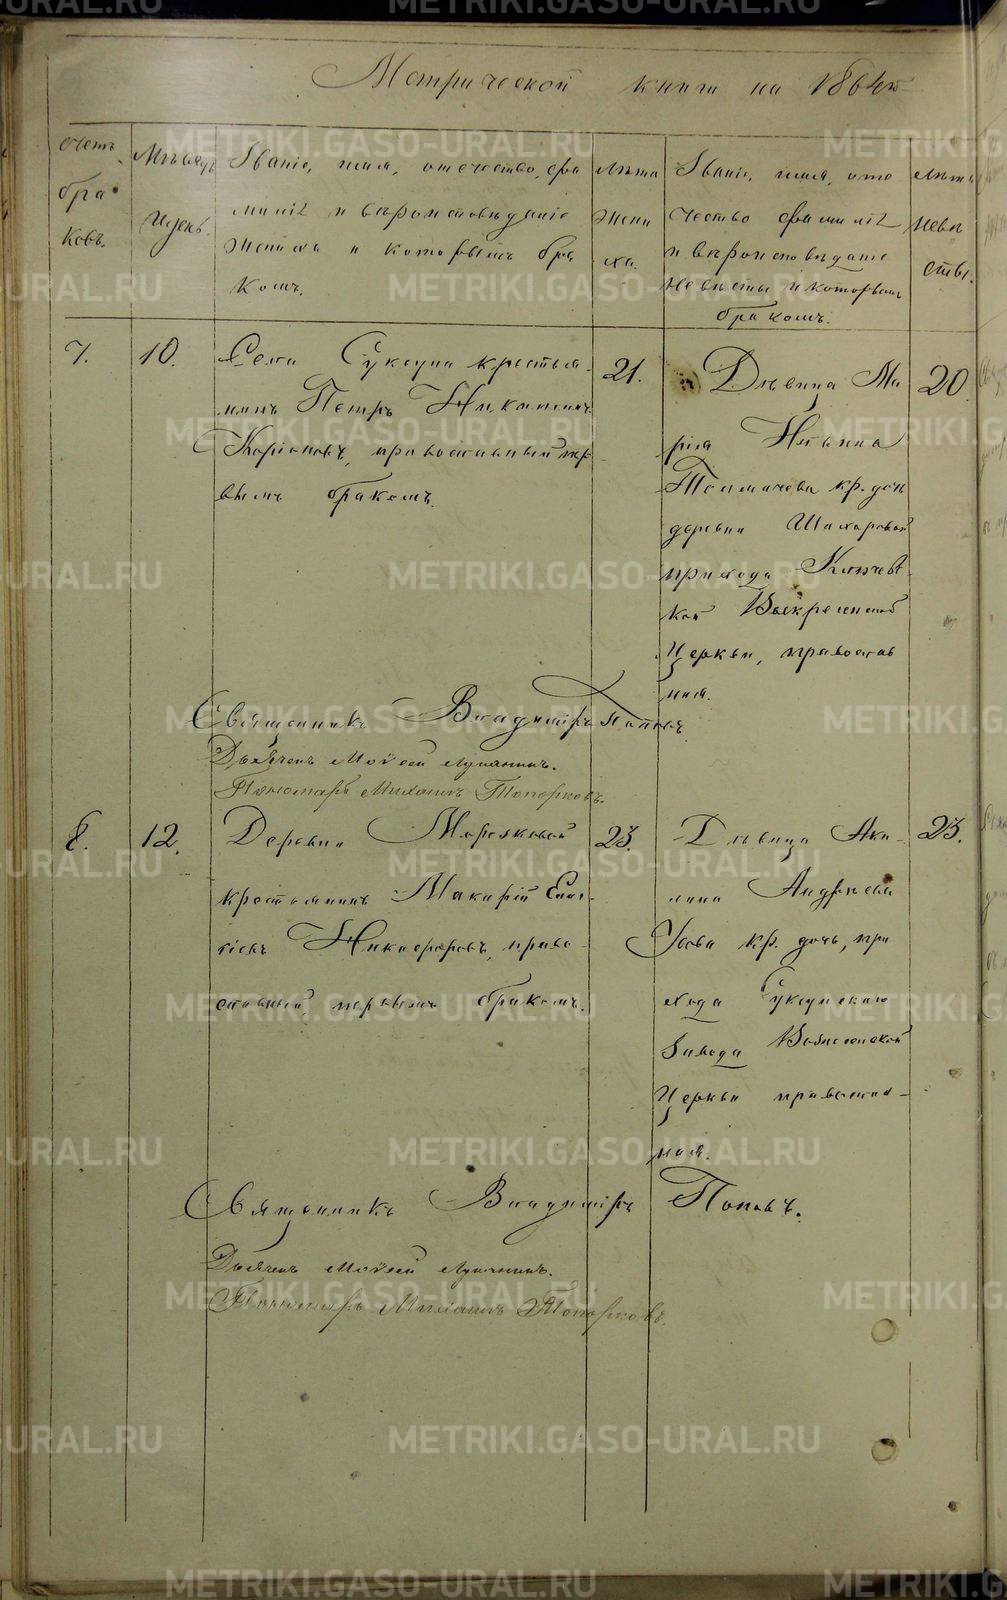 Метрической книги на 1864й
Счетъ браковъ.
Мѣсяцъ и день.
Званіе, имя, отечество, фамилія и вѣроисповѣданіе жениха и которымъ бракомъ.
Лѣта жениха.
Званіе, имя, отечество фамилія и вѣроисповѣданіе невѣсты и которымъ бракомъ.
Лѣта невѣсты.
7.
10.
Села Суксуна крестья-
нинъ Петръ Никитинъ
православный пер-
вымъ бракомъ.
21.
Дѣвица Ма
рія Ильина
Толмачева кр. дочь
деревни Шахаровой
прихода Ключев
кой Воскресенской
Церкви, православ
ная.
20
Священникъ Владиміръ Поповъ
Дьячекъ Моѵсей Лукинъ.
Пономарь Михаилъ Топорковъ.
8.
12.
Деревни
крестьянинъ Макарій
Никифоровъ, право-
славный, первымъ бракомъ.
23.
Дѣвица Аку-
лина Андреева
Усова кр. дочь, при
хода Суксунскаго
Завода Вознесенской
Церкви православ-
ная.
23.
Священникъ Владиміръ Поповъ.
Дьячекъ Моѵсей Лукинъ.
Пономарь Михаилъ Топорковъ.
METRIKI.GASO-URAL.RU